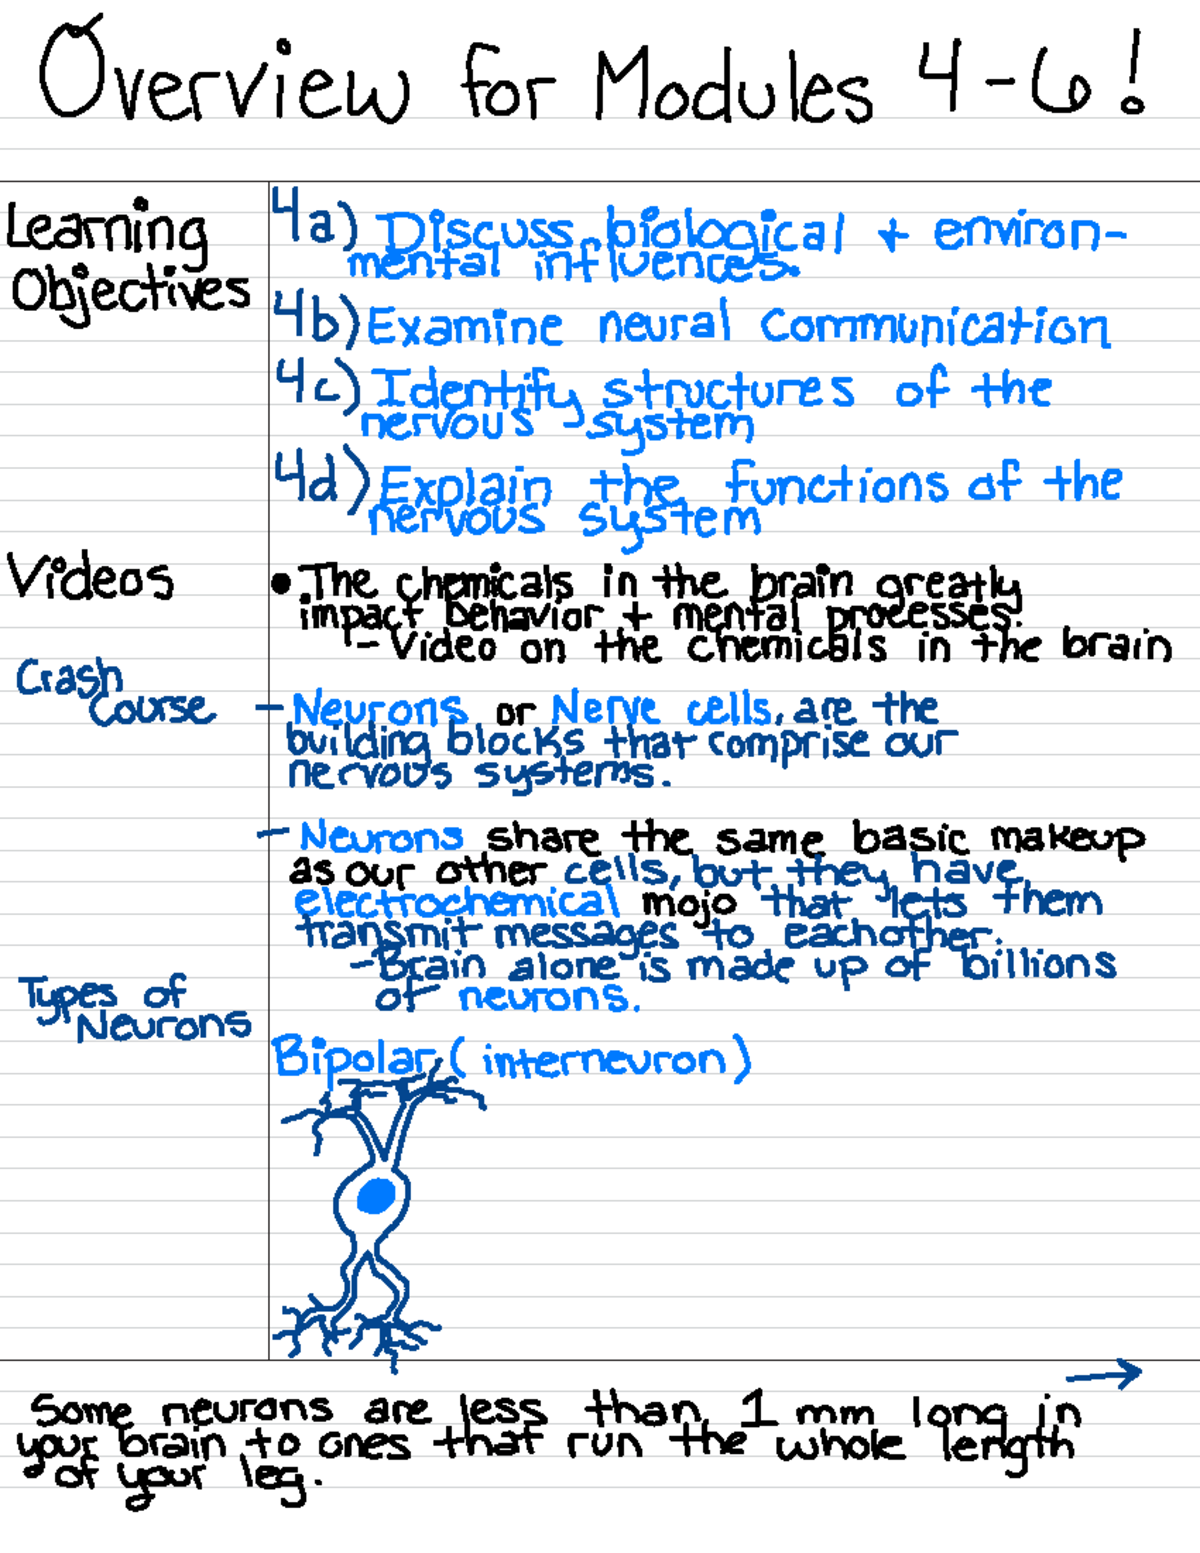 Overview for Modules 4-6!
Learning
Objectives
4a) Discuss biological + environ-
mental influences.
4b) Examine neural communication
4c) Identify structures of the
nervous system
4d) Explain the functions of the
nervous system
Videos
• The chemicals in the brain greatly
impact behavior + mental processes.
- Video on the chemicals in the brain
Crash
Course
- Neurons or Nerve cells, are the
building blocks that comprise our
nervous systems.
- Neurons share the same basic makeup
as our other cells, but they have
electrochemical mojo that lets them
transmit messages to eachother.
- Brain alone is made up of billions
of neurons.
Types of
Neurons
Bipolar (interneuron)
Some neurons are less than 1 mm long in
your brain to ones that run the whole length
of your leg.